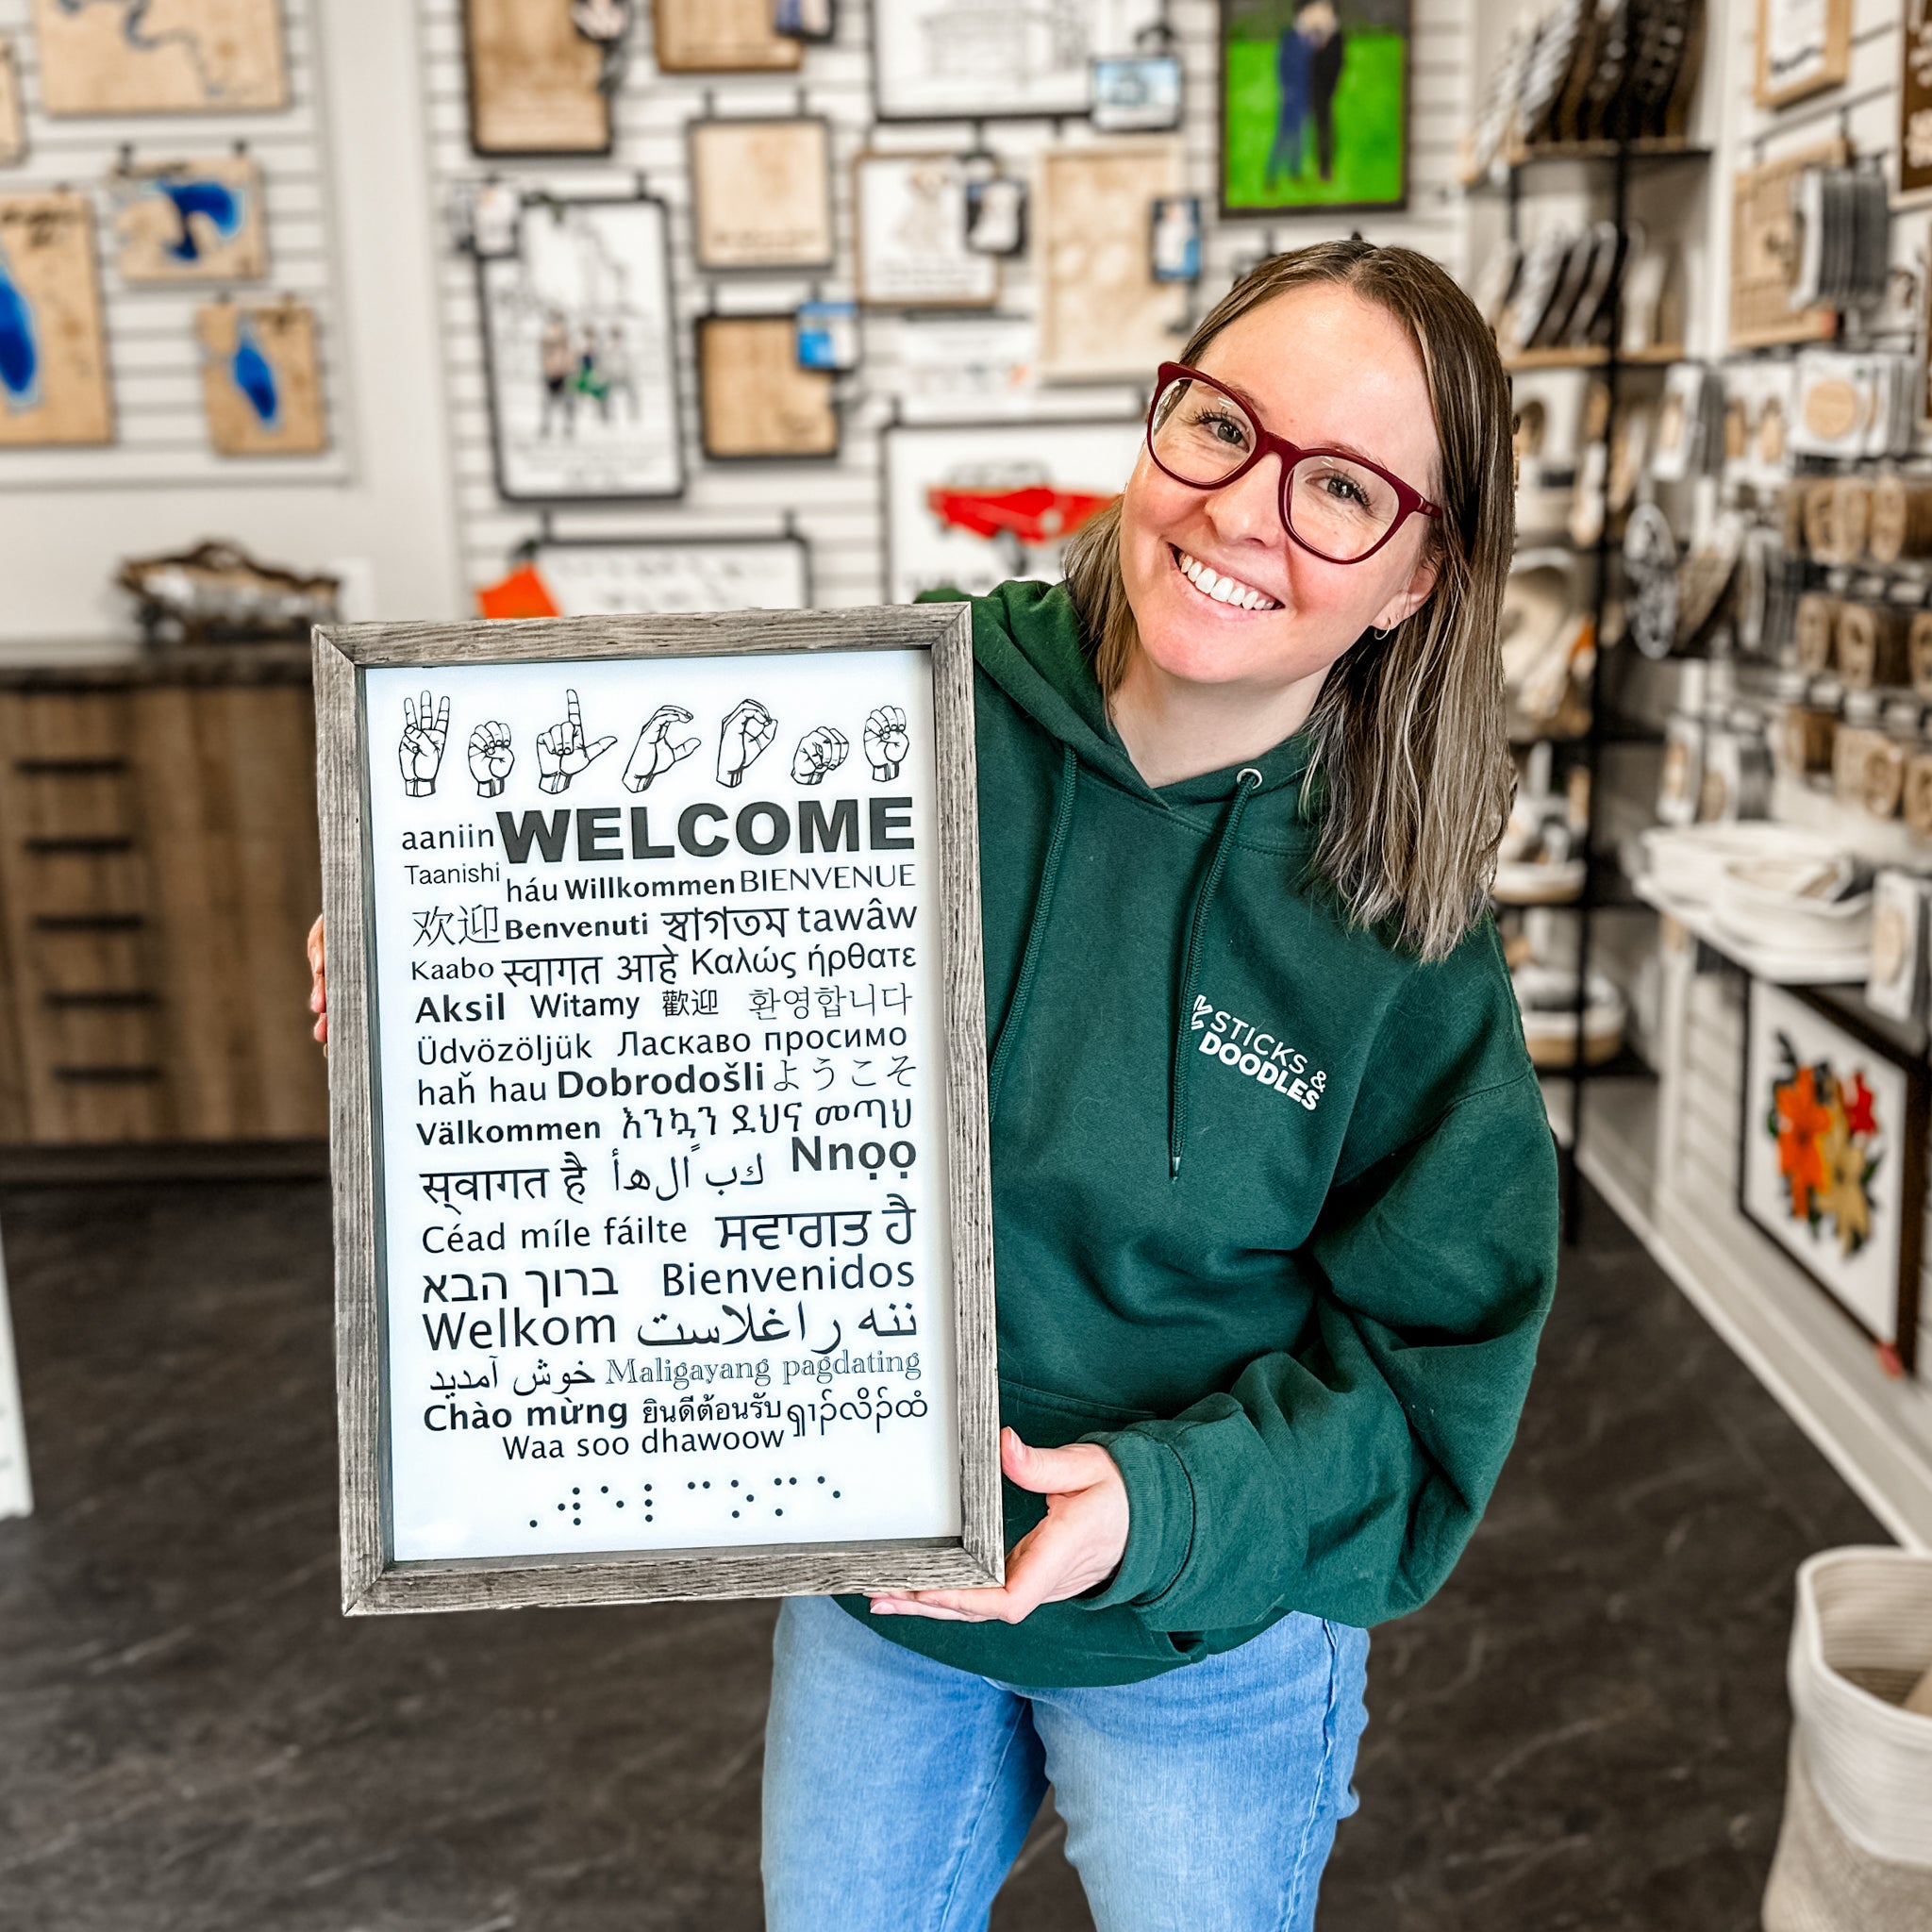 aaniin WELCOME
Taanishi háu Willkommen BIENVENUE
欢迎 Benvenuti স্বাগতম tawâw
Kaabo स्वागत आहे Καλώς ήρθατε
Aksil Witamy 歡迎 환영합니다
Üdvözöljük Ласкаво просимо
haȟ hau Dobrodošli ようこそ
Välkommen እንኳን ደህና መጣህ
स्वागत है أهلاً بك Nnọọ
Céad míle fáilte ਸਵਾਗਤ ਹੈ
ברוך הבא Bienvenidos
Welkom ننه راغلاست
خوش آمدید Maligayang pagdating
Chào mừng ยินดีต้อนรับ
Waa soo dhawoow
⠠⠺⠑⠇⠉⠕⠍⠑
STICKS &
DOODLES